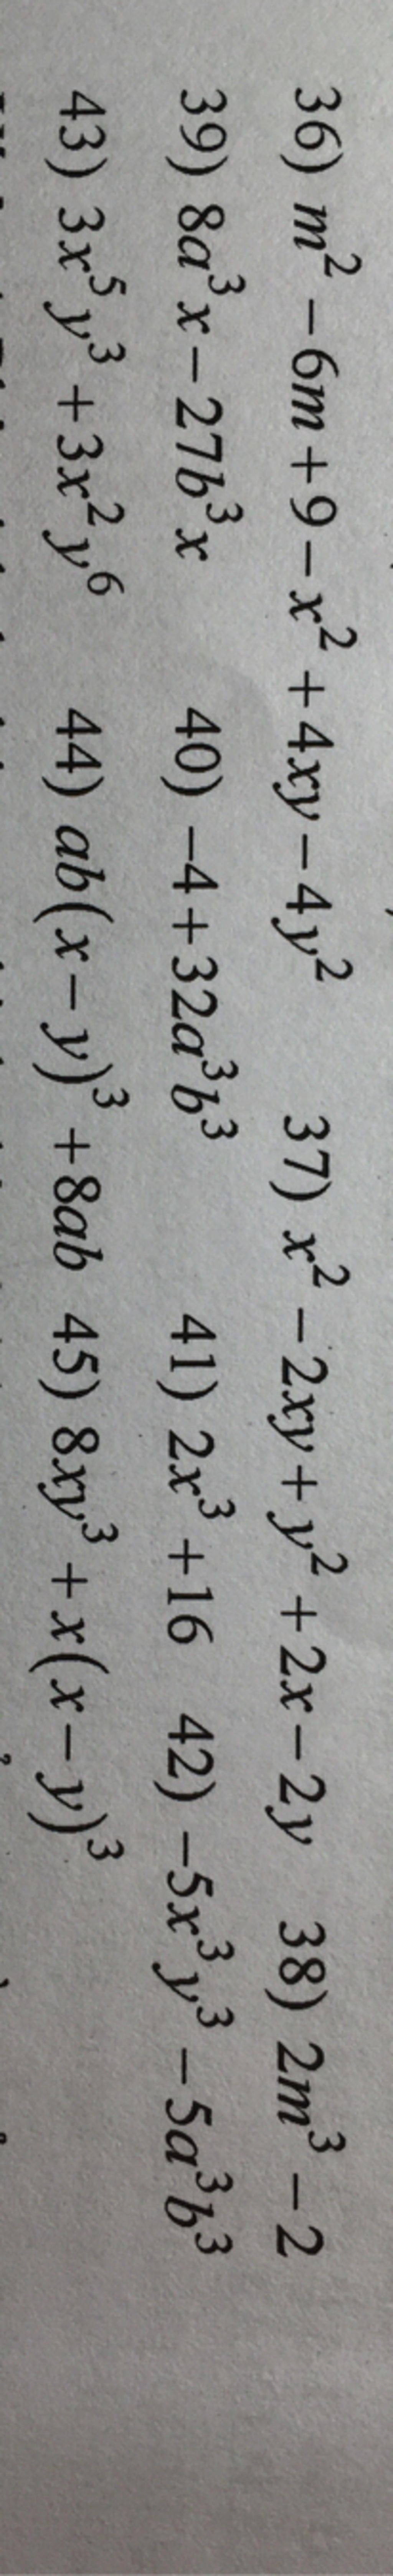 36) m² − 6m + 9 − x² + 4xy − 4y² 37) x² − 2xy + y² + 2x − 2y 38) 2m³ − 2
39) 8a³x − 27b³x 40) −4 + 32a³b³ 41) 2x³ + 16 42) −5x³y³ − 5a³b³
43) 3x⁵y³ + 3x²y⁶ 44) ab(x − y)³ + 8ab 45) 8xy³ + x(x − y)³